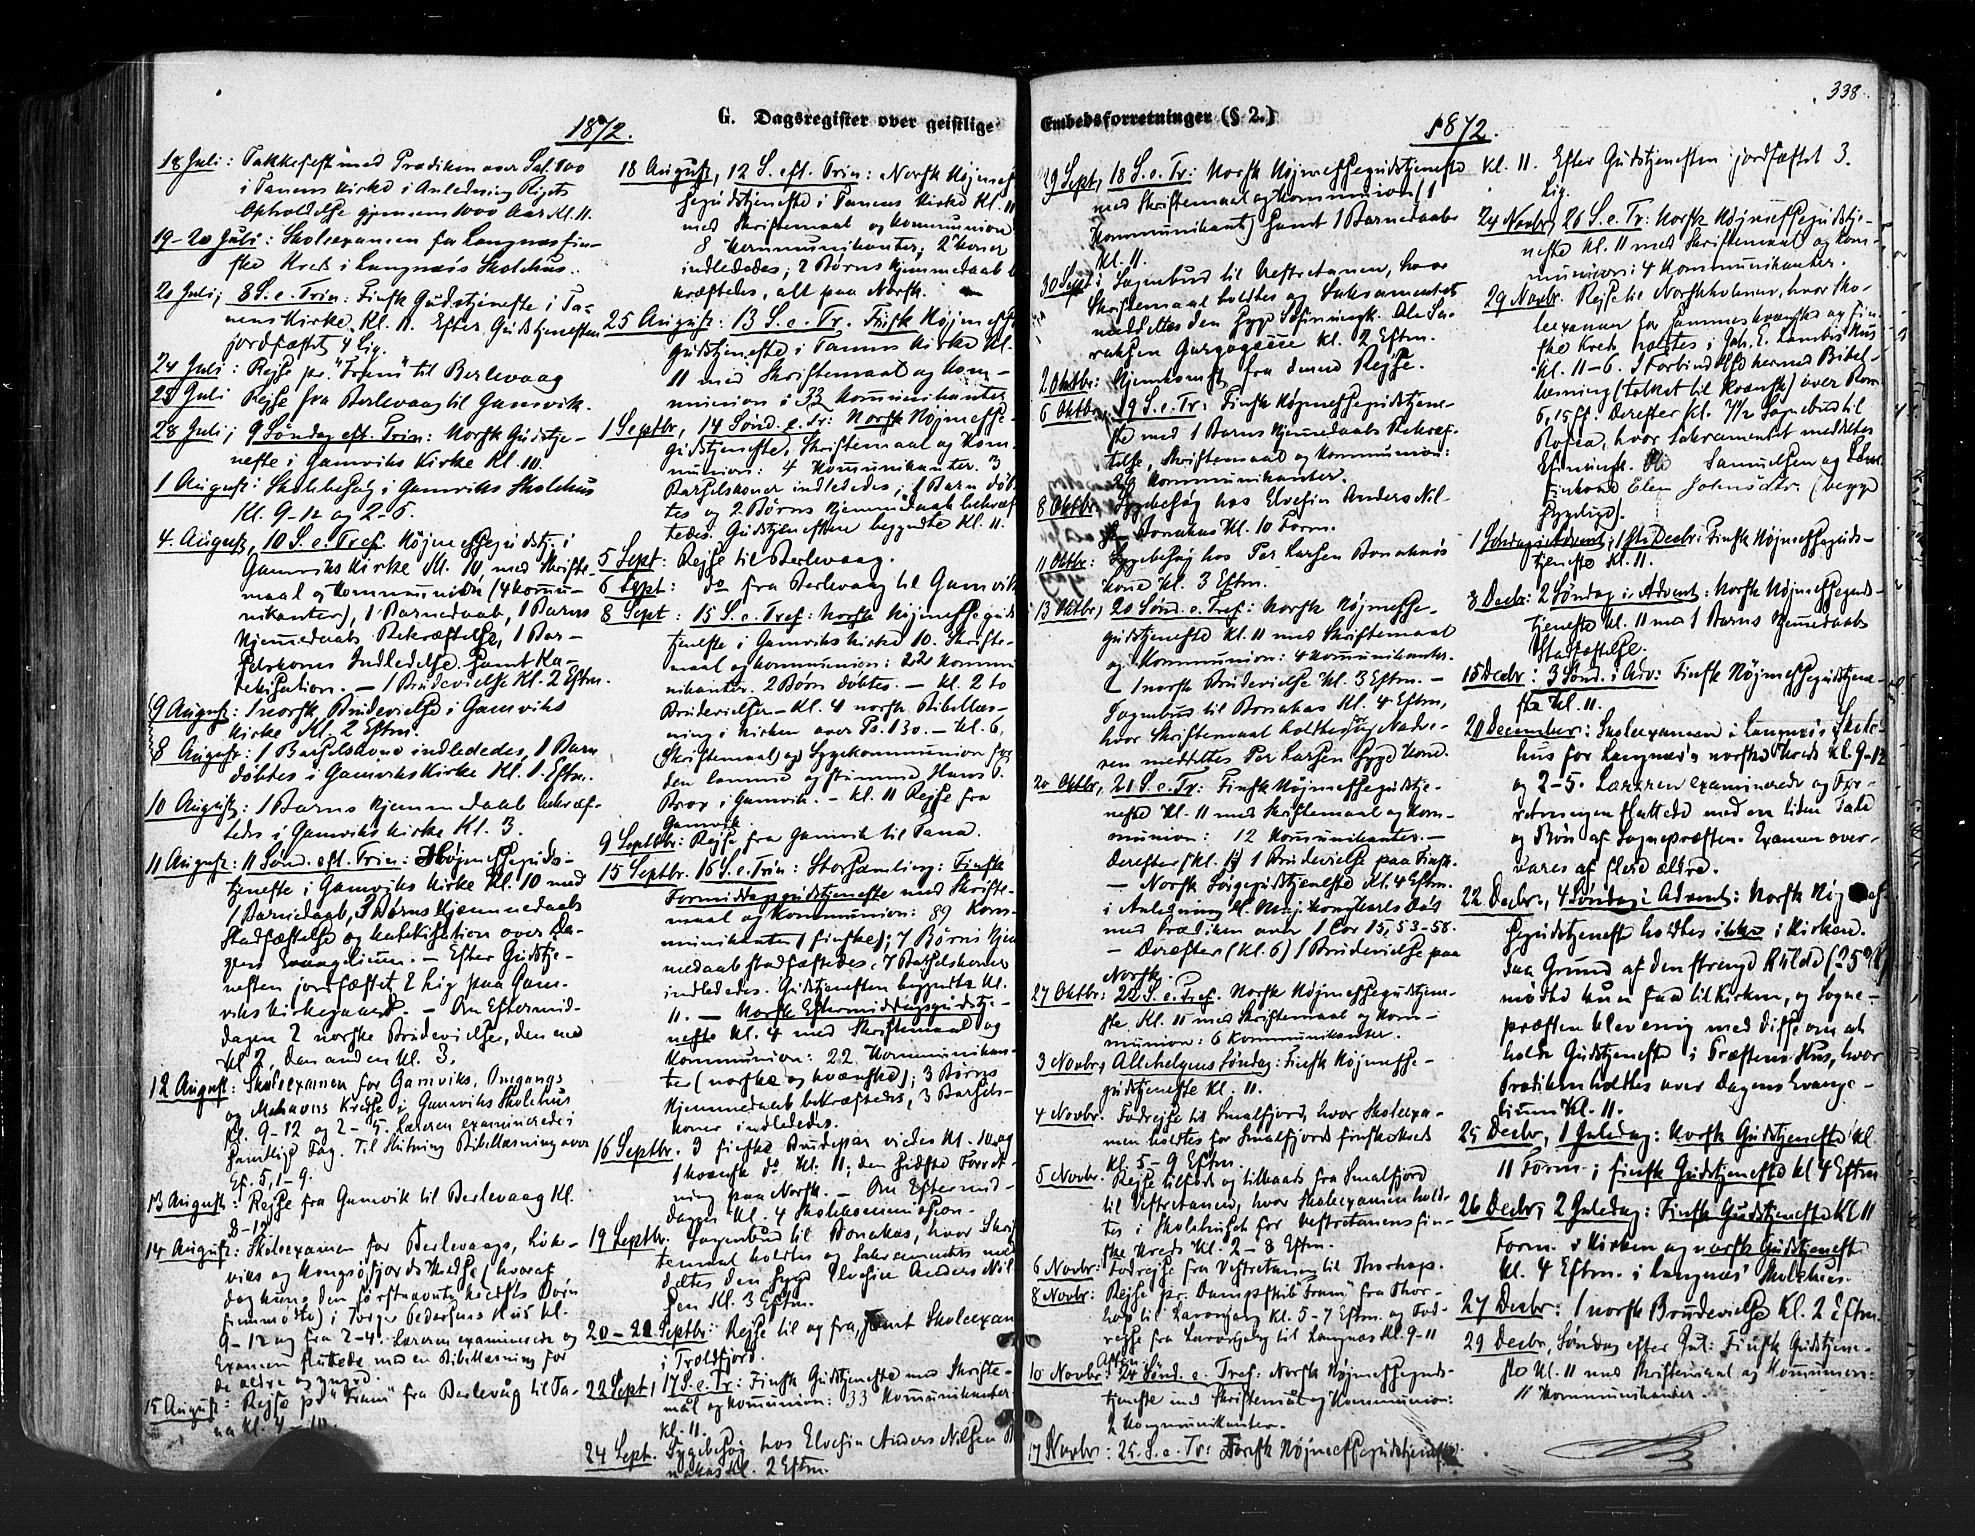 338.
G. Dagsregister over geistlige
Embedsforretninger (§ 2.)
1872.
18 Juli: Takkefest med Prædiken over Sal. 100
i Tanens Kirke i Anledning Rigets
Opholdelse gjennem 1000 Aar Kl. 11.
19-20 Juli: Skoleexamen for Langnæs fin-
ske Kreds i Langnæs's Skolehus.
20 Juli; 8 S. e. Trin: Finsk Gudstjeneste i Ta-
nens Kirke, Kl. 11. Efter Gudstjenesten
jordfæstet 4 Lig.
24 Juli: Rejse pr. "Fram" til Berlevaag
25 Juli Rejse fra Berlevaag til Gamvik.
28 Juli; 9 Søndag eft. Trin: Norsk Gudstje-
neste i Gamviks Kirke Kl. 10.
1 August: Skolebesøg i Gamviks Skolehus
Kl. 9-12 og 2-5.
4. August, 10 S. e. Tref. Højmessegudstj. i
Gamviks Kirke Kl. 10, med Skrifte-
maal og Kommunion (4 Kommu-
nikanter), 1 Barnedaab, 1 Barns
Hjemmedaabs Bekræftelse, 1 Bar-
selskones Indledelse samt Ka-
tekisation. — 1 Brudevielse Kl. 2 Eftm.
9 August: 1 norsk Brudevielse i Gamviks
Kirke Kl. 2 Eftm.
8 August: 1 Barselskone indlededes, 1 Barn
døbtes i Gamviks Kirke Kl. 1. Eftm.
10 August: 1 Barns Hjemmedaab bekræf-
tedes i Gamviks Kirke Kl. 3.
11 August: 11 Sønd. eft. Trin: Højmesseguds-
tjeneste i Gamviks Kirke Kl. 10 med
1 Barnedaab, 3 Børns Hjemmedaabs
Stadfæstelse og Katekisation over Da-
gens Evangelium. — Efter Gudstje-
nesten jordfæstet 2 Lig paa Gam-
viks Kirkegaard. — Om Eftermid-
dagen 2 norske Brudevielser, den ene
Kl. 2, den anden Kl. 3.
12 August: Skoleexamen for Gamviks, Omgangs
og Mehavns Kredse i Gamviks Skolehus
Kl. 9-12 og 2-5. Læreren examinerede i
samtlige Fag. Til Slutning Bibellæsning over
Ef. 5, 1-9.
13 August: Rejse fra Gamvik til Berlevaag Kl.
8-12
14 August: Skoleexamen for Berlevaags, Løk-
viks og Kongsøfjords Kredse (hvoraf
dog kuns den førstnævnte Kredses Børn
fremmødte) i Torger Pedersens Hus Kl.
9-12 og fra 2-4. Læreren examinerede og
Examen sluttede med en Bibellæsning for
de ældre og yngre.
15 August: Rejse pr. "Fram" fra Berlevåg til Ta-
na Kl. 4-10.
18 August, 12 S. eft. Trin: Norsk Højmes-
segudstjeneste i Tanens Kirke Kl. 11
med Skriftemaal og Kommunion
8 Kommunikanter; 2 Koner
indlededes; 2 Børns Hjemmedaab be-
kræftedes, alt paa Norsk.
25 August: 13 S. e. Tr. Finsk Højmesse
gudstjeneste i Tanens Kirke Kl.
11 med Skriftemaal og Kom-
munion: 33 Kommunikanter
1 Septbr, 14 Sønd. e. Tr: Norsk Højmesse-
gudstjeneste, Skriftemaal og Kom-
munion: 4 Kommunikanter. 3
Barselskoner indlededes; 1 Barn døb-
tes og 2 Børns Hjemmedaab bekræf-
tedes. Gudstjenesten begyndte Kl. 11.
5 Sept: Rejse til Berlevaag.
6 Sept: do fra Berlevaag til Gamvik
8 Sept: 15 S. e. Tref: Norsk Højmesseguds
tjeneste i Gamviks Kirke 10. Skrifte-
maal og Kommunion: 22 Kommu
nikanter. 2 Børn døbtes. — Kl. 2 to
Brudevielser — Kl. 4 norsk Bibellæs-
ning i Kirken over Ps. 130. — Kl. 6,
(Skriftemaal) og Sygekommunion for
den lamme og stumme Hans P.
Brox i Gamvik. — Kl. 11 Rejse fra
Gamvik.
9 Septbr: Rejse fra Gamvik til Tana.
15 Septbr. 16 S. e. Trin: Storsamling: Finsk
Formiddagsgudstjeneste med Skrifte-
maal og Kommunion: 89 Kom-
munikanter (finske); 7 Børns Hjem
medaab stadfæstedes, 7 Barselskoner
indlededes. Gudstjenesten begyndte Kl.
11. — Norsk Eftermiddagsgudstj-
neste Kl. 4 med Skriftemaal og
Kommunion: 22 Kommunikan-
ter (norske og kvænske); 3 Børns
Hjemmedaab bekræftedes, 3 Barsels-
koner indlededes.
16 Septbr. 3 finske Brudepar viedes Kl. 10 og
1 kvænsk do Kl. 11; den sidste Forret-
ning paa Norsk. — Om Eftermid-
dagen Kl. 4 Skolekommission.
19 Septbr. Sognebud til Bonakas, hvor Skrif
temaal holdtes og Sakramentet med
deltes den syge Elvefin Anders Nil
sen Kl. 3 Eftm.
20-21 Septbr: Rejse til og fra, samt Skoleexam
i Troldfjord.
22 Sept, 17 S. e. Tr: Finsk Gudstjeneste med Skrifte-
mål og Kommunion: 33 Kommunikanter
Kl. 11.
24 Sept. Sygebesøg hos Elvefin Anders Nilsen B
nakas Kl. 2 Eftm.
1872.
29 Sept, 18 S. e. Tr: Norsk Højmessegudstjeneste
med Skriftemaal og Kommunion (1
Kommunikant) samt 1 Barnedaab
Kl. 11.
30 Sept: Sognebud til Vestretanen, hvor
Skriftemaal holdtes og Sakramentet
meddeltes den syge Søfinmsk. Ole
Kl. 2 Eftm.
2 Oktbr: Hjemkomst fra denne Rejse.
6 Oktbr, 19 S. e. Tr: Finsk Højmessegudstjene-
ste med 1 Barns Hjemmedaabs Bekræf-
telse, Skriftemaal og Kommunion:
29 Kommunikanter.
8 Oktbr Sygebesøg hos Elvefin Anders Nil-
sen Bonakas Kl. 10 Form.
11 Oktbr: Sygebesøg hos Per Larsen Bonaknæs
Kone Kl. 3 Eftm.
13 Oktbr, 20 Sønd. e. Tref: Norsk Højmesse-
gudstjeneste Kl. 11 med Skriftemaal
og Kommunion: 4 Kommunikanter.
— 1 norsk Brudevielse Kl. 3 Eftm. —
Sognebud til Bonakas Kl. 4 Eftm,
hvor Skriftemaal holdtes og Nadve-
ren meddeltes Per Larsens syge Kone.
20 Oktbr, 21 S. e. Tr: Finsk Højmessegudstje-
neste Kl. 11 med Skriftemaal og Kom-
munion: 12 Kommunikanter. —
Derefter (Kl. 1) 1 Brudevielse paa Finsk.
— Norsk Sørgegudstjeneste Kl. 4 Eftm.
i Anledning H. Maj Kong Karls Død
med Prædiken over 1 Cor 15, 53-58.
— Derefter (Kl. 6) 1 Brudevielse paa
Norsk.
27 Oktbr: 22 S. e. Tref. Norsk Højmessegudstjene-
ste Kl. 11 med Skriftemaal og Kom-
munion: 6 Kommunikanter.
3 Novbr, Allehelgens Søndag: Finsk Højmesse-
gudstjeneste Kl. 11.
4 Novbr. Fodrejse til Smalfjord, hvor Skoleexa-
men holdtes for Smalfjords finske Kreds
Kl. 5-9 Eftm.
5 Novbr. Rejse tilfods og tilbaads fra Smalfjord
til Vestretanen, hvor Skoleexamen hold-
tes i Skolehuset for Vestretanens fin-
ske Kreds Kl. 2-8 Eftm.
6 Novbr: Fodrejse fra Vestretanen til Thorhop.
8 Novbr: Rejse pr. Dampskib "Fram" fra Thor-
hop til Lavonjarg Kl. 5-7 Eftm. og Fod-
rejse fra Lavonjarg til Langnæs Kl. 9-11
Aften.
10 Novbr. 24 Sønd. e. Tref: Norsk Højmesseguds-
tjeneste med Skriftemål og Kommunion:
2 Kommunikanter.
17 Novbr: 25. S. e. Tr: Finsk Højmessegudstjeneste
Kl. 11. Efter Gudstjenesten jordfæstet 3.
Lig.
24 Novbr, 26 S. e. Tr: Norsk Højmessegudstje-
neste Kl. 11 med Skriftemaal og Kom-
munion: 4 Kommunikanter.
29 Novbr. Rejse til Norskholmen, hvor Sko-
leexamen for Tanneskvænske og fin-
ske Kreds holdtes i Joh. E. Hus
Kl. 11-6. I Forbindelse hermed Bibel-
læsning (tolket til Kvænsk) over Rom
6, 15 ff. Derefter Kl. 7½ Sognebud til
hvor Sakramentet meddeltes
Samuelsen og
Finkone Elen Johnsdtr. (begge
sygelige).
1 Søndag i Advent, 1ste Decbr: Finsk Højmesseguds-
tjeneste Kl. 11.
8 Decbr: 2 Søndag i Advent: Norsk Højmesseguds-
tjeneste Kl. 11 med 1 Barns Hjemmedaabs
Stadfæstelse.
15 Decbr: 3 Sønd. i Adv: Finsk Højmessegudstjene-
ste Kl. 11.
20 December: Skoleexamen i Langnæs Skole-
hus for Langnæs's norske Kreds Kl. 9-12
og 2-5. Læreren examinerede og For-
retningen sluttede med en liden Tale
og Bøn af Sognepræsten. Examen over-
vares af flere ældre.
22 Decbr., 4 Søndag i Advent: Norsk Højmes-
segudstjeneste holdtes ikke i Kirken.
Paa Grund af den strenge Kulde (÷ 25° R)
mødte kun faa til Kirken, og Sogne-
præsten blev enig med disse om at
holde Gudstjeneste i Præstens Hus, hvor
Prædiken holdtes over Dagens Evange-
lium Kl. 11.
25 Decbr, 1 Juledag: Norsk Gudstjeneste Kl.
11 Form. ; finsk Gudstjeneste Kl 4 Eftm
26 Decbr, 2 Juledag: Finsk Gudstjeneste Kl 11
Form. i Kirken og norsk Gudstjeneste
Kl. 4 Eftm. i Langnæs' Skolehus.
27 Decbr: 1 norsk Brudevielse Kl. 2 Eftm.
29 Decbr, Søndag efter Jul: Finsk Gudstjene-
ste Kl. 11 med Skriftemaal og Kommunion:
11 Kommunikanter.